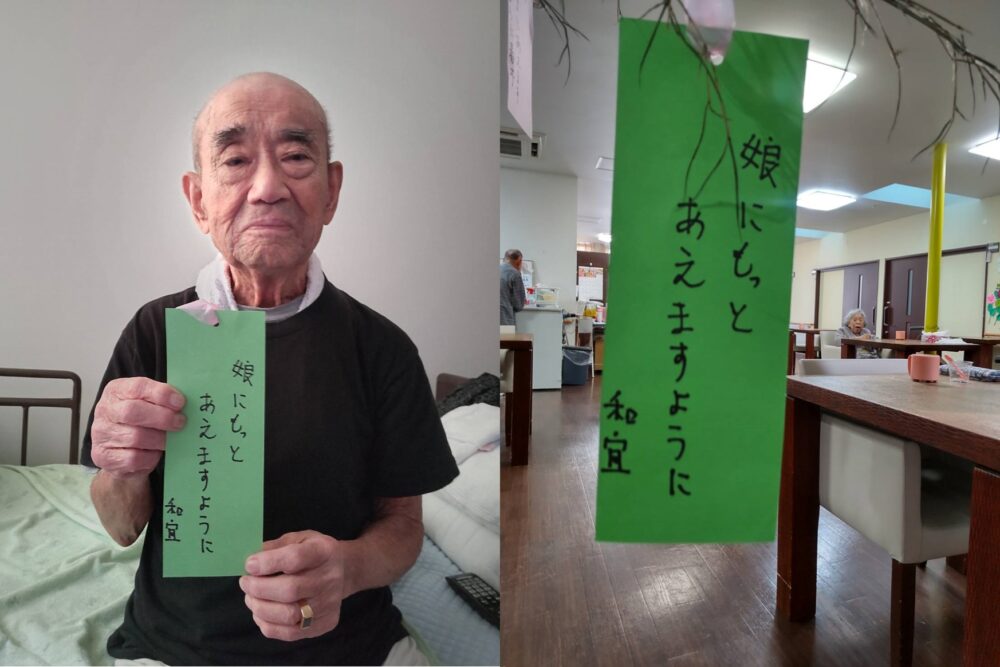 娘にもっと
あえますように
和宜
娘にもっと
あえますように
和宜